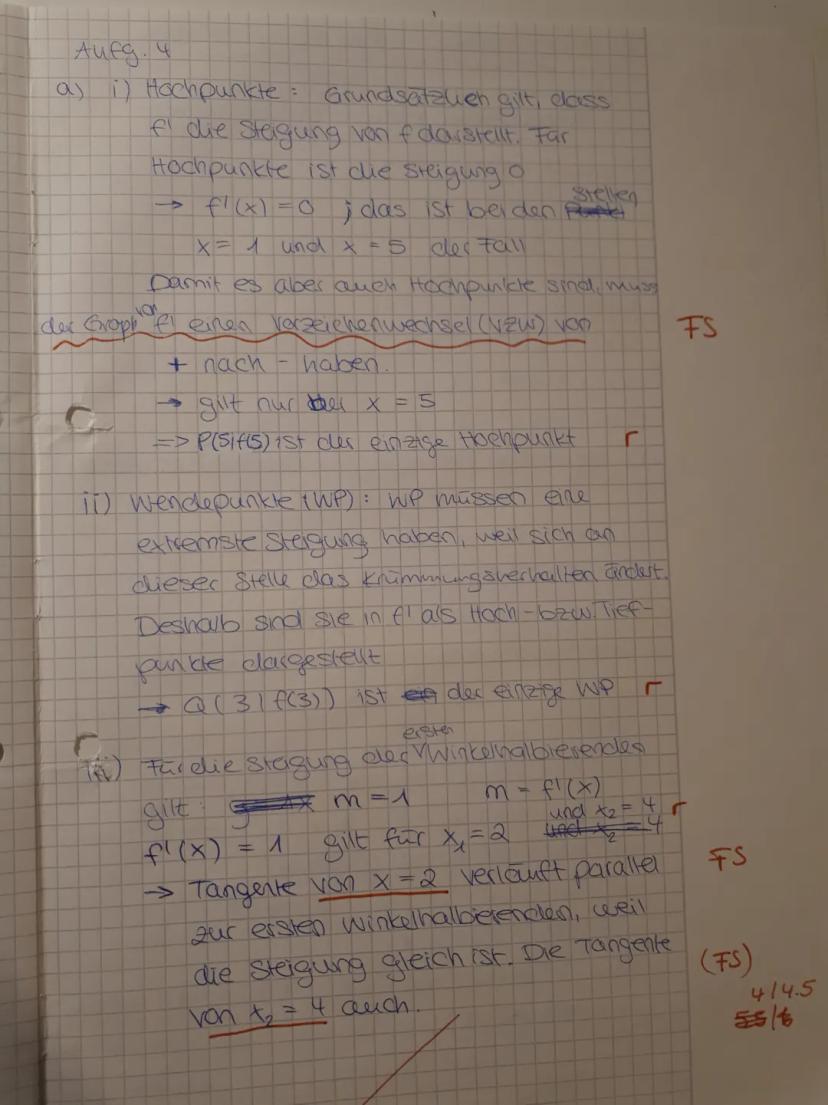 Aufg. 4
a) i) Hochpunkte: Grundsätzlich gilt, dass
f' die Steigung von f darstellt. Für
Hochpunkte ist die Steigung 0
→ f'(x) = 0 ; das ist bei den Stellen
x = 1 und x = 5 der Fall
Damit es aber auch Hochpunkte sind, muss
der Graph von f' einen Vorzeichenwechsel (VZW) von FS
+ nach - haben.
→ gilt nur bei x = 5
=> P(5|f(5)) ist der einzige Hochpunkt r
ii) Wendepunkte (WP): WP müssen eine
extremste Steigung haben, weil sich an
dieser Stelle das Krümmungsverhalten ändert.
Deshalb sind sie in f' als Hoch- bzw. Tief-
punkte dargestellt
→ Q(3|f(3)) ist der einzige WP r
iii) Für die Steigung der ersten Winkelhalbierenden
gilt: m = 1 m = f'(x)
f'(x) = 1 gilt für x₁ = 2 und x₂ = 4 r
→ Tangente von x = 2 verläuft parallel FS
zur ersten Winkelhalbierenden, weil
die Steigung gleich ist. Die Tangente (FS)
von x₂ = 4 auch. 4/4.5